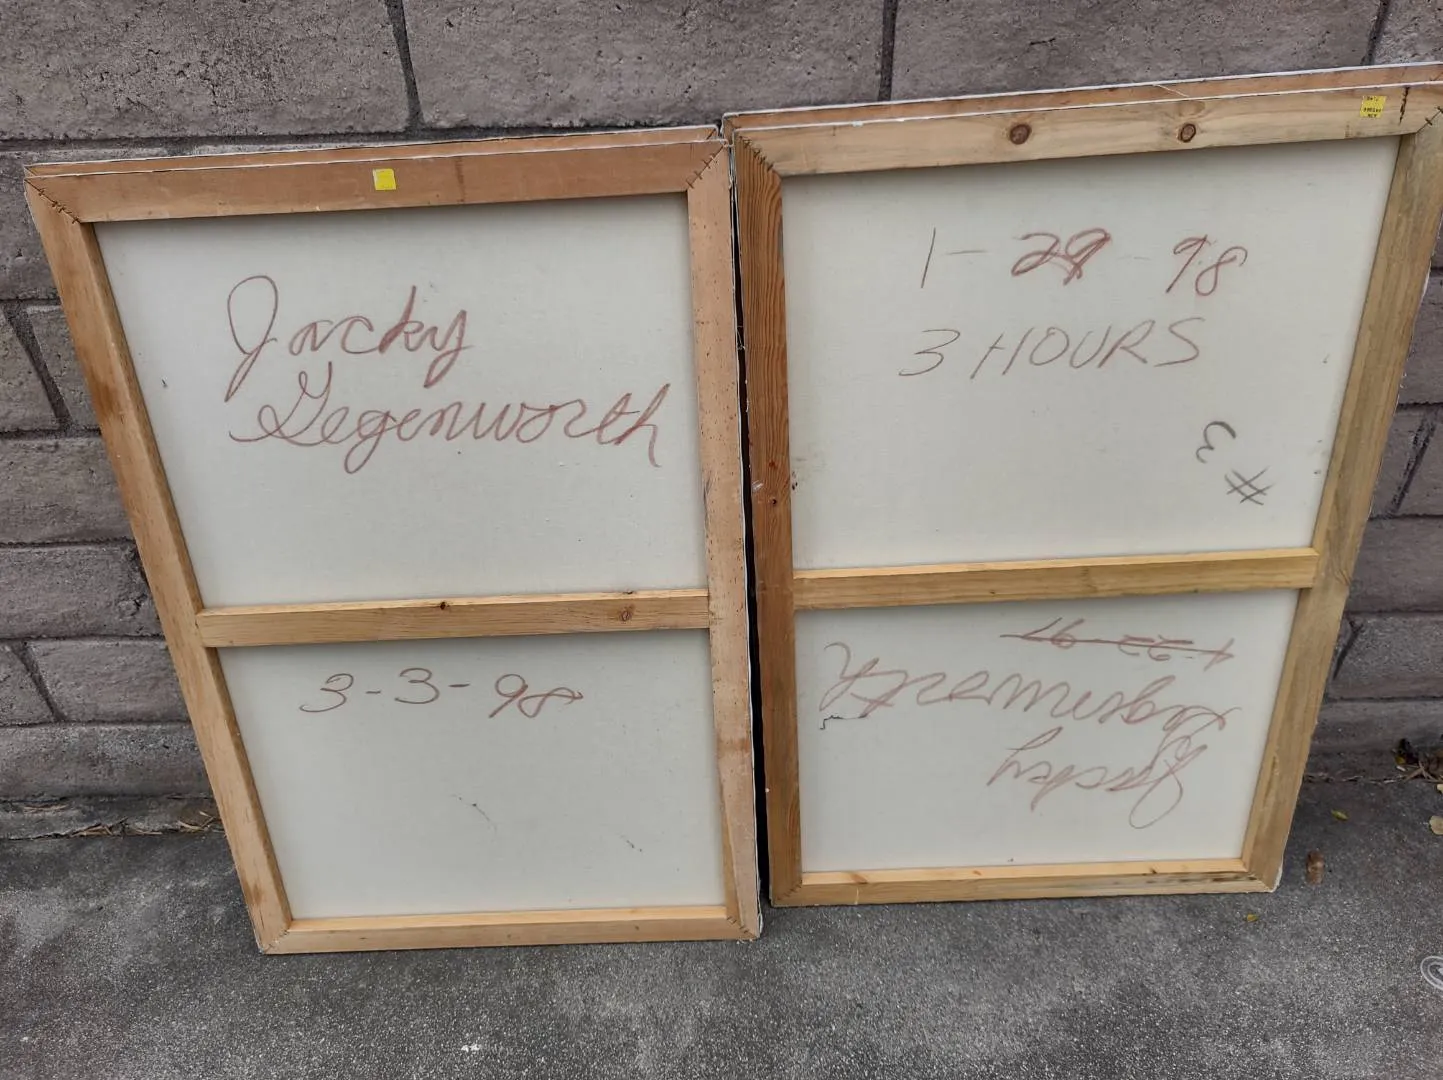 Jacky
Gegenworth
3-3-98
1-29-98
3 HOURS
# 3
Jacky
Gegenworth